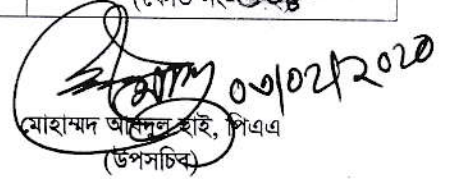 ০৩/০২/২০২০
মোহাম্মদ আবদুল হাই, পিএএ
(উপসচিব)